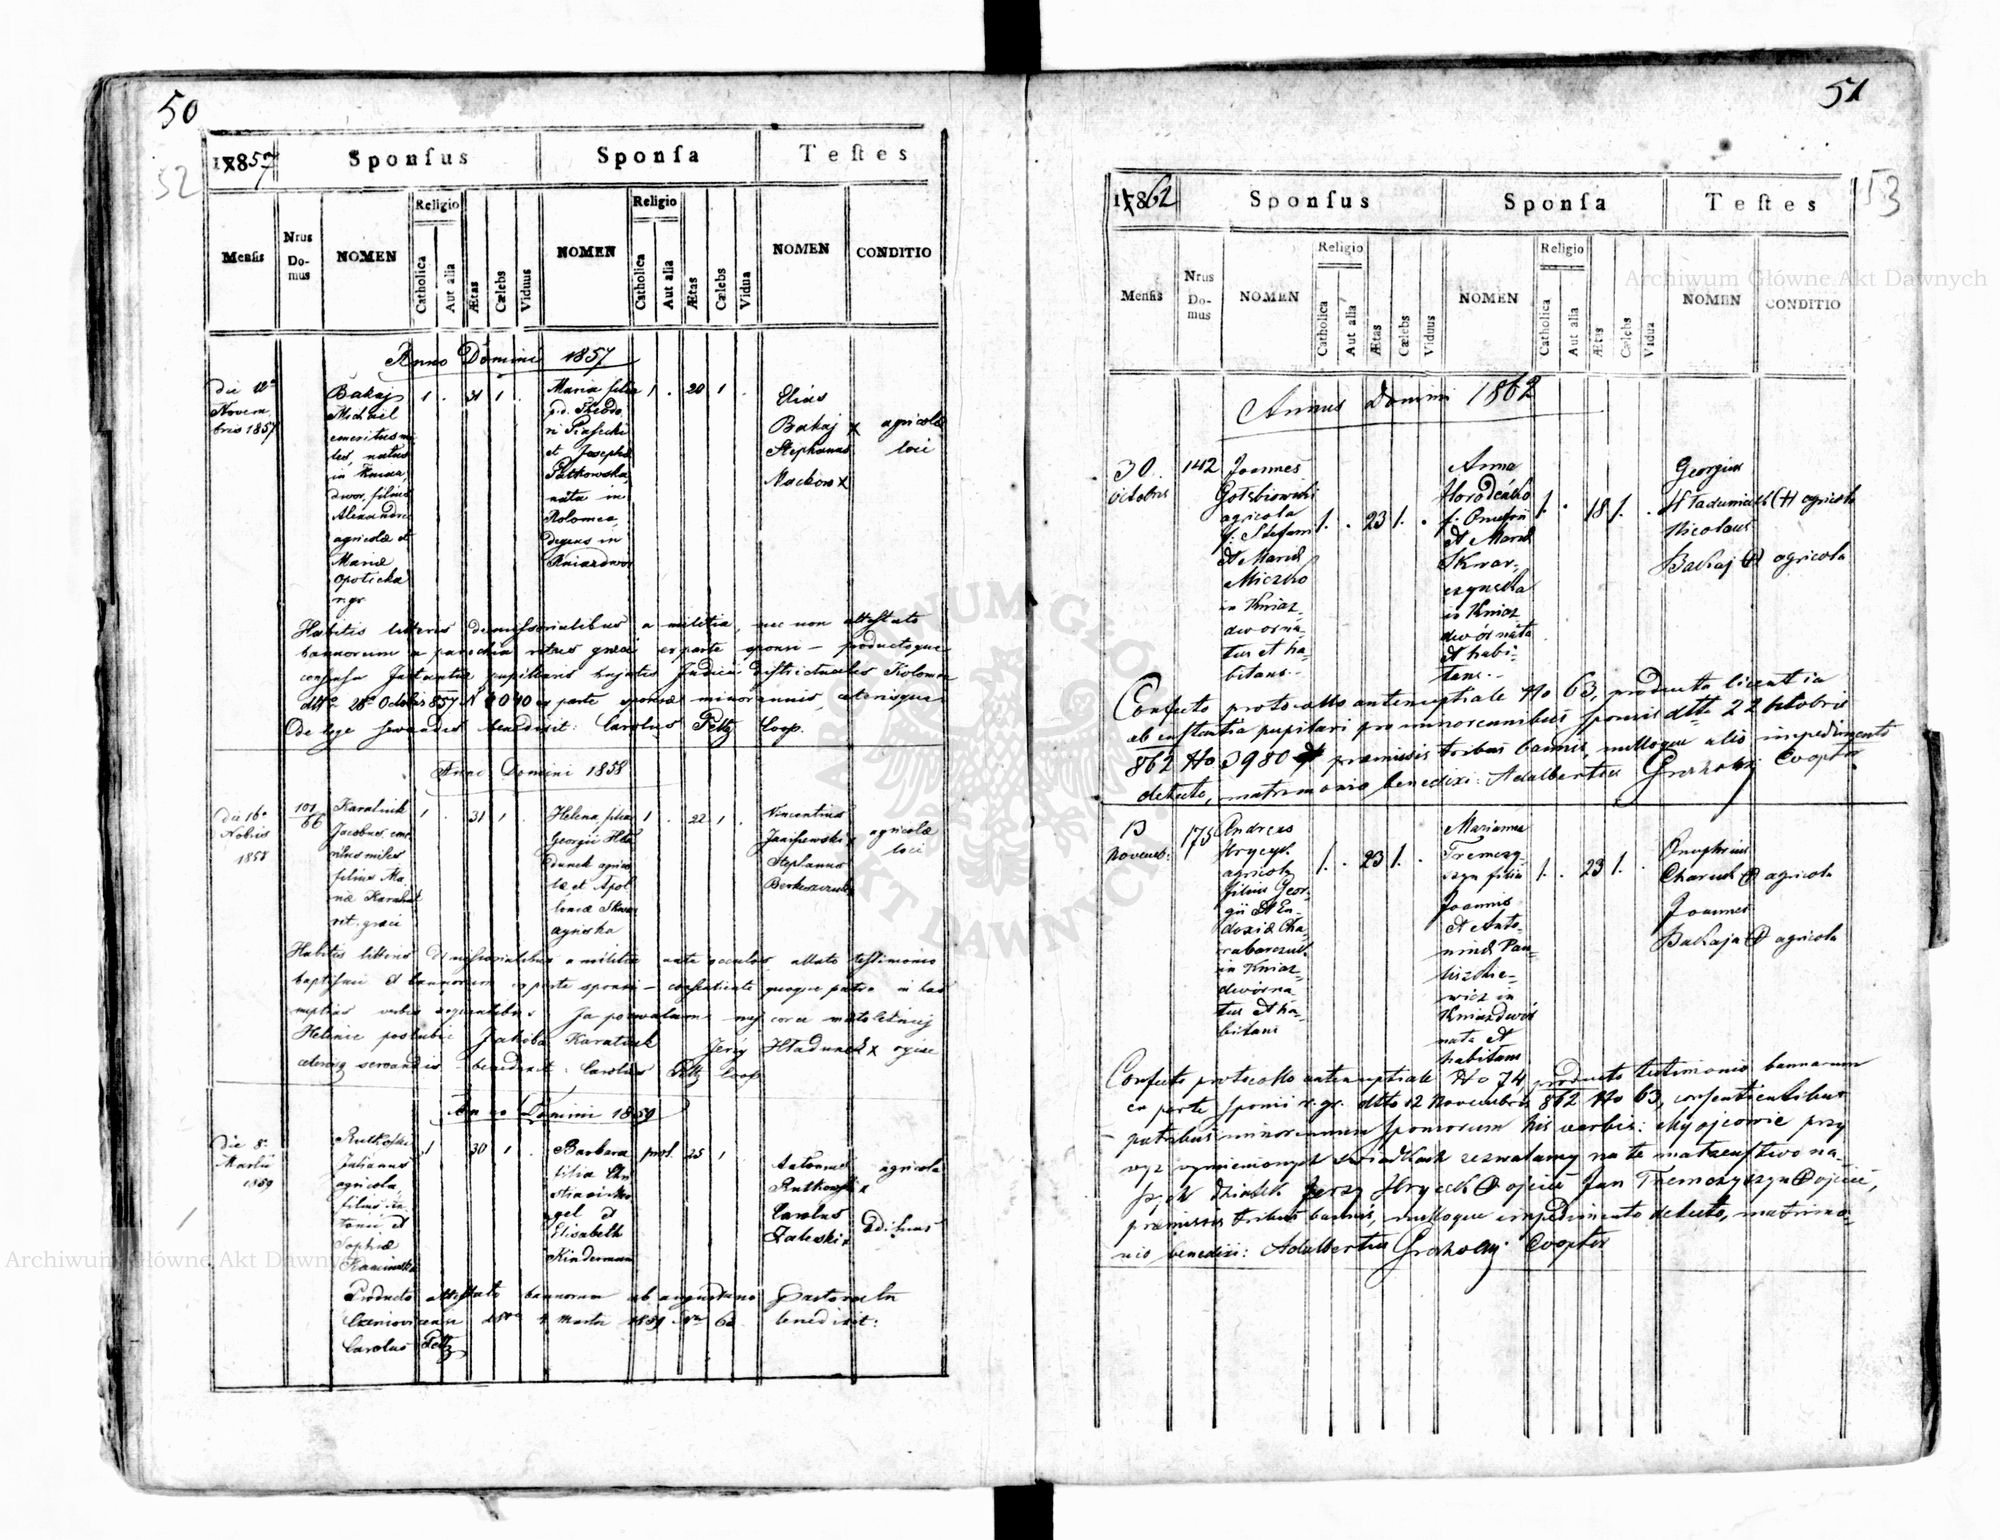 50
52
1857
Sponſus
Sponſa
Teſtes
Menſis
Nrus Domus
NOMEN
Religio
Catholica
Aut alia
Ætas
Cælebs
Viduus
NOMEN
Religio
Catholica
Aut alia
Ætas
Cælebs
Vidua
NOMEN
CONDITIO
Anno Domini 1857
Die 12a
Novem
bris 1857
Bakaj
Michael
emeritus mi
les, natus
in Kniaz
dwor, filius
Alexandri
agricolæ et
Mariæ
r. gr.
1 . 31 1 .
Maria filia
p. d. Theodo
ri Piasecki
et Josephæ
Petkowska
nata in
Kolomea,
degens in
Kniazdwor
1 . 20 1 .
Elias
Bakaj x agricolæ
Stephanus loci
Mackow x
Habitis litteris dimissorialibus a militia, nec non attestato
bannorum a parochia ritus græci ex parte sponsi – productoque
consensu Instantiæ pupillaris Judicii districtualis Kolomea
ex parte sponsæ minorennis, ceterisque
De lege servandis benedixit: Carolus Peltz Coop.
Anno Domini 1858
Die 16a
Nobris
1858
101
66
Karatnik
Jacobus eme
ritus miles
filius Ma
riæ Karatnik
rit. græci
1 . 31 1 .
Helena filia
Georgii Hła
dunek agrico
læ et Apol
loniæ Skwar
czyńska
1 . 22 1 .
Vincentius
Janiszewski x agricolæ
Stephanus loci
Habitis litteris dimissorialibus a militia attato testimonio
baptismi et bannorum ex parte sponsi – consentiente quoque patre in has
nuptias verbis sequentibus Ja pozwalam mej corce małoletniej
Helenie poslubic Jakoba Karatnik Jerzy Hładunek x ojciec
ceterisq servandis – benedixit: Carolus Peltz Coop
Anno Domini 1859
Die 8a
Martii
1859
Rutkoski
Julianus
agricola
filius An
tonii et
Sophiæ
1 . 30 1 .
Barbara
filia Chri
stiani
gel et
Elisabeth
Kinderman
prot. 25 1 .
Antonius agricola
Rutkowski x
Carolus
Zaleski x
Producto attestato bannorum ab augustano pastorali
4 Martii 1859 Nro 62 benedixit:
Carolus Peltz
51
53
1862
Sponſus
Sponſa
Teſtes
Menſis
Nrus Domus
NOMEN
Religio
Catholica
Aut alia
Ætas
Cælebs
Viduus
NOMEN
Religio
Catholica
Aut alia
Ætas
Cælebs
Vidua
NOMEN
CONDITIO
Annus Domini 1862
30
Octobris
142
Joannes
Gołebiowski
agricola
f. Stefani
et Mariæ
Miczko
in Kniaz
dwor na
tus et ha
bitans.
1. . 23 1. .
Anna
Horodeńko
f. Onufrii
et Mariæ
Skwar-
czynska
in Kniaz
dwór nata
et habi-
tans.
1. . 18 1. .
Georgius
Hładuniak (+) agricola
Nicolaus
Bakaj (+) agricola
Confecto protocollo antenuptiale No 63, producta licentia
ab instantia pupilari pro minorennibus sponsis dtto 22 Octobris
862 No 3980 et præmissis tribus bannis, nulloque alio impedimento
detecto, matrimonio benedixi: Adalbertus Cooptr
13
Novemb.
175
Andreas
Hrycyk
agricola
filius Geor-
gii et Eu-
doxiæ Cha-
rabarczuk
in Kniaz-
dwór na-
tus et ha-
bitans
1. . 23 1. .
Marianna
Tremczy-
szyn filia
Joannis
et Anto-
ninæ Pau-
liszkie-
wicz in
Kniazdwór
nata et
habitans
1. . 23 1. .
Onuphrius
Charuk (+) agricola
Joannes
Bakaja (+) agricola
Confecto protocollo antenuptiale No 74, producto testimonio bannorum
ex parte sponsi r. gr. dtto 12 Novembris 862 No 63, consentientibus
patribus minorennum sponsorum his verbis: My ojcowie przy
wyz wymienionych swiadkach zezwalamy na te matzenstwo na-
szych dziatek Jerzy Hrycek (+) ojciec Jan Tremczyszyn (+) ojciec,
præmissis tribus bannis, nulloque impedimento detecto, matrimo-
nio benedixi: Adalbertus Cooptor
Archiwum Główne Akt Dawnych
Archiwum Główne Akt Dawnych
ARCHIWUM GŁÓWNE AKT DAWNYCH